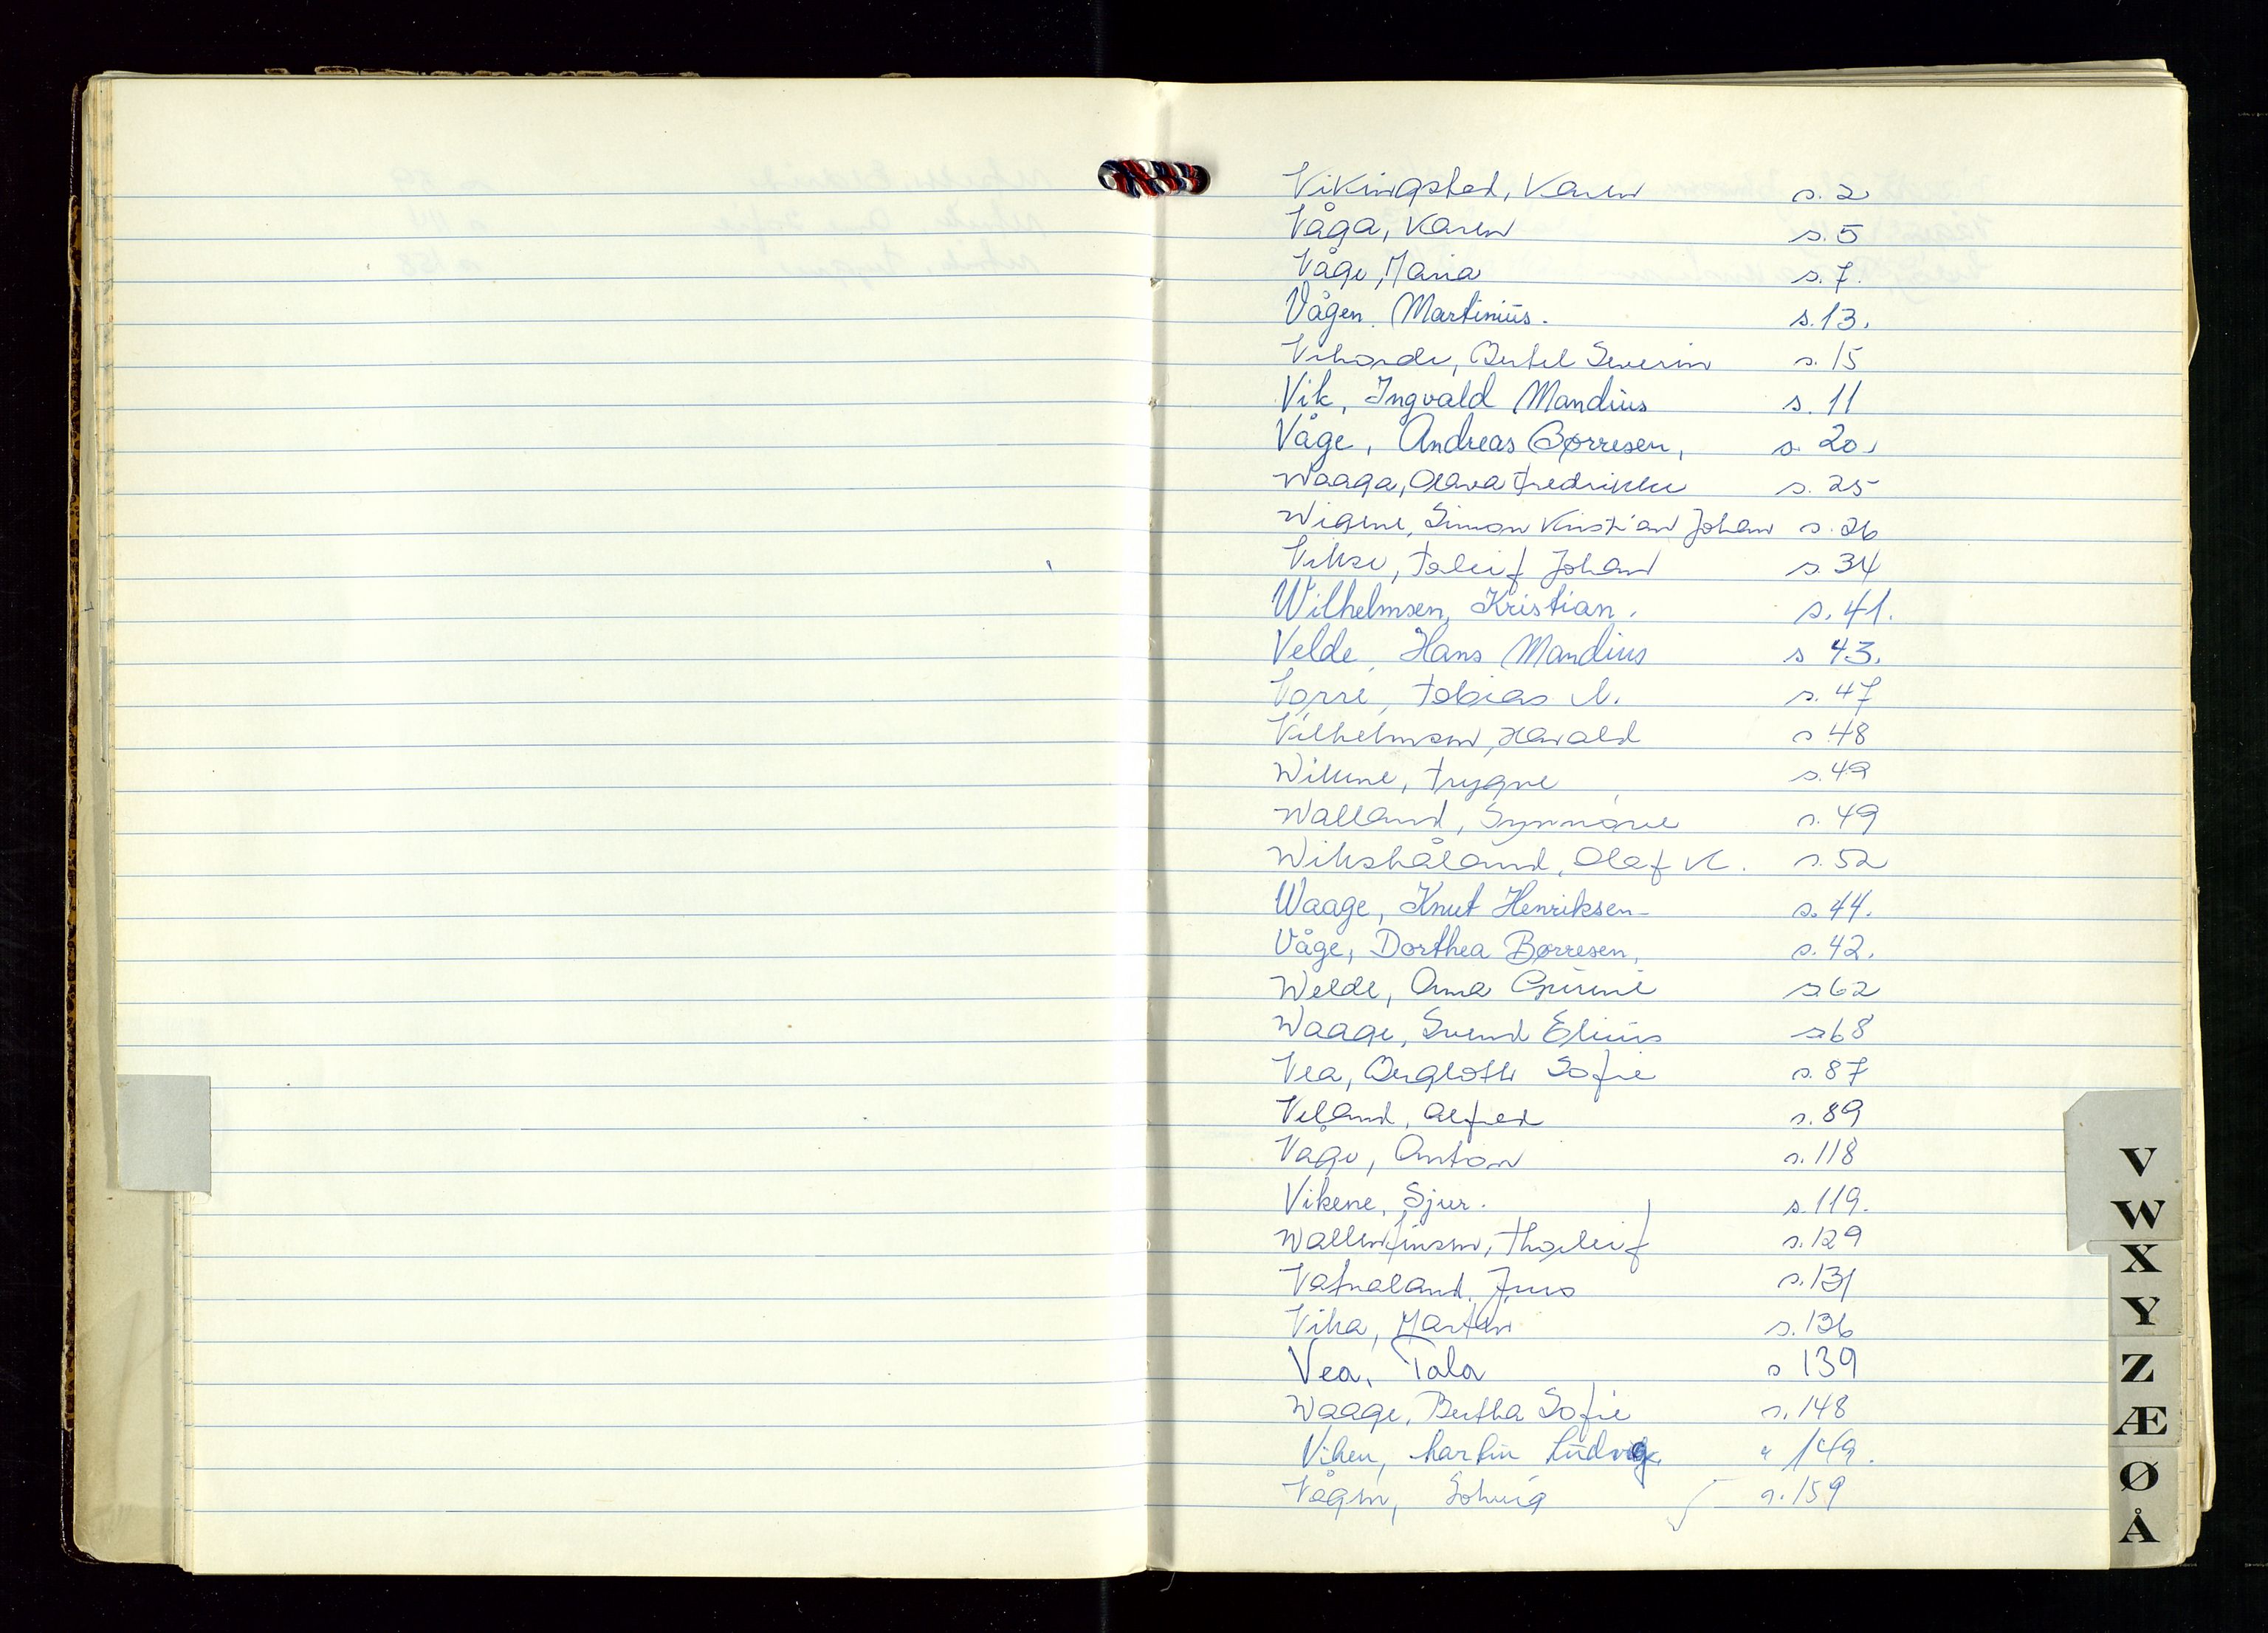 Vikingstad, Karen s. 2
Våga, Karen s. 5
Våge, Maria s. 7.
Vågen. Martinius. s. 13.
Vihovde, Bertel Severin s. 15
Vik, Ingvald Mandius s. 11
Våge, Andreas Børresen, s. 20.
Waaga, Olava Fredrikke s. 25
Wigene, Simon Kristian Johan s. 26
Vikse, Toleif Johan s. 34
Wilhelmsen, Kristian. s. 41.
Velde, Hans Mandius s 43.
Vorre, Tobias N. s. 47
Vilhelmsen, Harald s 48
Wikene, Trygve s. 49
Walland, Synnøve s. 49
Wikshåland, Olaf K. s. 52
Waage, Knut Henriksen s. 44.
Våge, Dorthea Børresen, s. 42.
Welde, Anna Gurine s 62
Waage, Svend Elius s 68
Vea, Bergitte Sofie s. 87
Veland, Alfred s. 89
Våge, Anton s. 118
Vikene, Sjur. s. 119.
Wallentinsen, Thorleif s. 129
Vatnaland, Jens s. 131
Vika, Martin s. 136
Vea, Tala s 139
Waage, Bertha Sofie s. 148
Viken, Martin Ludvig. " 149.
Vågen, Solveig s. 159
V
W
X
Y
Z
Æ
Ø
Å